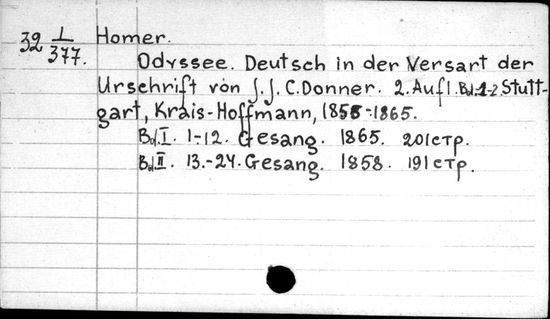 32 1/377. Homer.
Odyssee. Deutsch in der Versart der
Urschrift von J. J. C. Donner. 2. Aufl. Bd. 1-2 Stutt-
gart, Krais-Hoffmann, 1858-1865.
Bd. I. 1-12. Gesang. 1865. 201 стр.
Bd. II. 13.-24. Gesang. 1858. 191 стр.